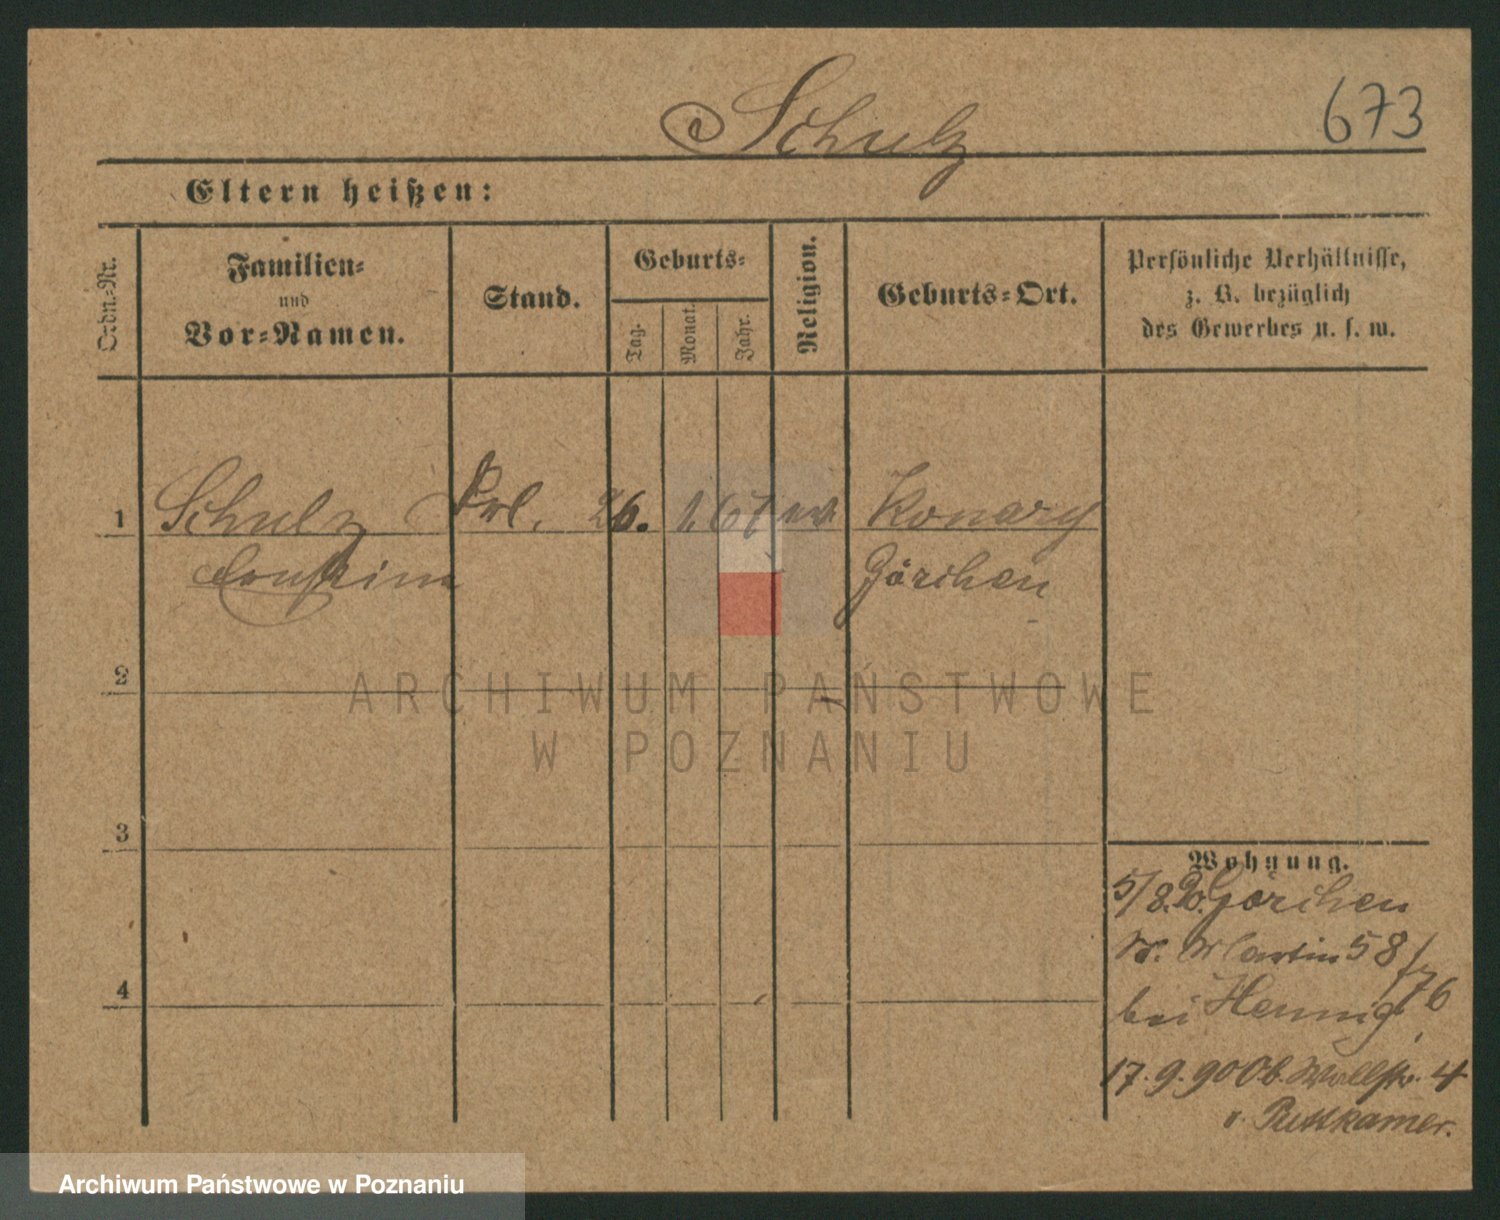 Schulz
673
Eltern heißen:
Ordn.-Nr.
Familien-
und
Vor-Namen.
Stand.
Geburts-
Tag.
Monat.
Jahr.
Religion.
Geburts-Ort.
Persönliche Verhältnisse,
z. B. bezüglich
des Gewerbes u. s. w.
1
Schulz Frl. 26. 1. 67 ev Konary
Görchen
2
3
4
Wohnung.
5/8.90. Görchen
St. Martin 58/76
bei Hennig
17.9.90 Ob. Wallstr. 4
v. Puttkamer.
ARCHIWUM PAŃSTWOWE
W POZNANIU
Archiwum Państwowe w Poznaniu